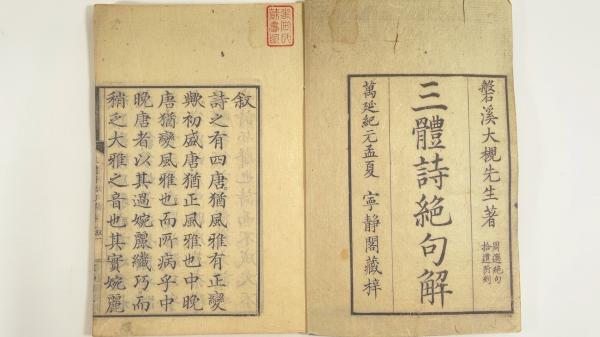 磐溪大槻先生著
周選絶句
拾遺附刻
三體詩絶句解
萬延紀元孟夏 寧静閣藏梓
敘
詩之有四唐猶風雅有正變
歟初盛唐猶正風雅也中晩
唐猶變風雅也而所病乎中
晩唐者以其過婉麗纖巧而
稍乏大雅之音也其實婉麗